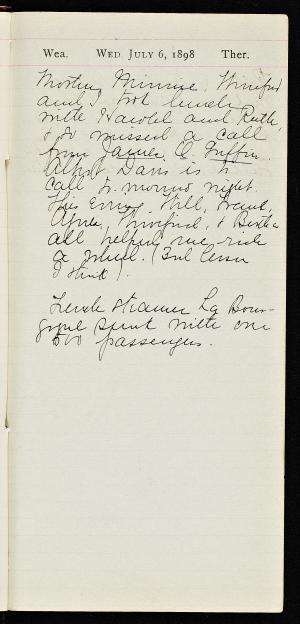 Wea. WED. JULY 6, 1898 Ther.
Mother, Minnie, Winifred
and I took lunch
with Harold and Ruth,
& so missed a call
from James C. Griffin.
Albert Davis is to
call to-morrow night.
This evening Will, Frank,
Agnes, Winifred, & Bertha
all helped me ride
a wheel. (3rd lesson
I think).
French steamer La Bour-
gogne sunk with over
500 passengers.